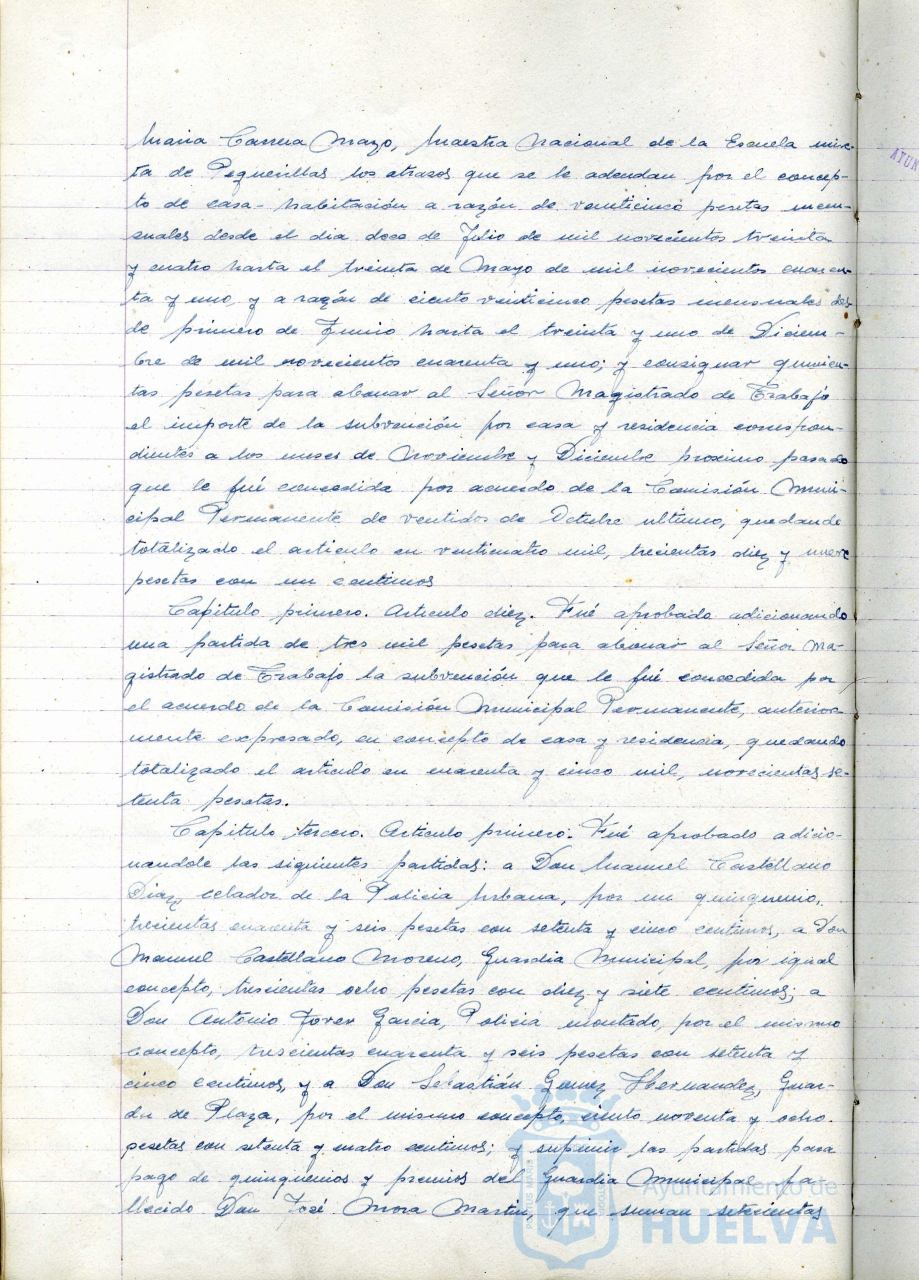 Maria Correa Mazo, Maestra Nacional de la Escuela mix-
ta de Pequeñillas los atrasos que se le adeudan por el concep-
to de casa-habitación a razón de veinticinco pesetas men-
suales desde el dia doce de Julio de mil novecientos treinta
y cuatro hasta el treinta de Mayo de mil novecientos cuaren-
ta y uno, y a razón de ciento venticinco pesetas mensuales des-
de primero de Junio hasta el treinta y uno de Diciem-
bre de mil novecientos cuarenta y uno; y consignar quinien-
tas pesetas para abonar al Señor Magistrado de Trabajo
el importe de la subvención por casa y residencia correspon-
dientes a los meses de Noviembre y Diciembre proximo pasado
que le fué concedida por acuerdo de la Comisión Muni-
cipal Permanente de ventidos de Octubre ultimo, quedando
totalizado el articulo en venticuatro mil, trecientas diez y nueve
pesetas con un centimos
Capitulo primero. Articulo diez. Fué aprobado adicionando
una partida de tres mil pesetas para abonar al Señor Ma-
gistrado de Trabajo la subvención que le fué concedida por
el acuerdo de la Comisión Municipal Permanente, anterior-
mente expresado, en concepto de casa y residencia, quedando
totalizado el articulo en cuarenta y cinco mil, novecientas se-
tenta pesetas.
Capitulo tercero. Articulo primero. Fué aprobado adicio-
nandole las siguientes partidas: a Don Manuel Castellano
Diaz, celador de la Policia Urbana, por un quinquenio,
trecientas cuarenta y seis pesetas con setenta y cinco centimos, a Don
Manuel Castellano Moreno, Guardia Municipal, por igual
concepto, trescientas ocho pesetas con diez y siete centimos; a
Don Antonio Tover Garcia, Policia montado, por el mismo
concepto, trescientas cuarenta y seis pesetas con setenta y
cinco centimos, y a Don Sebastián Gomez Hernandez, Guar-
da de Plaza, por el mismo concepto, ciento noventa y ocho
pesetas con setenta y cuatro centimos; y suprimir las partidas para
pago de quinquenios y premios del Guardia Municipal fa-
llecido Don José Mora Martin, que suman setecientas
Ayuntamiento de
HUELVA